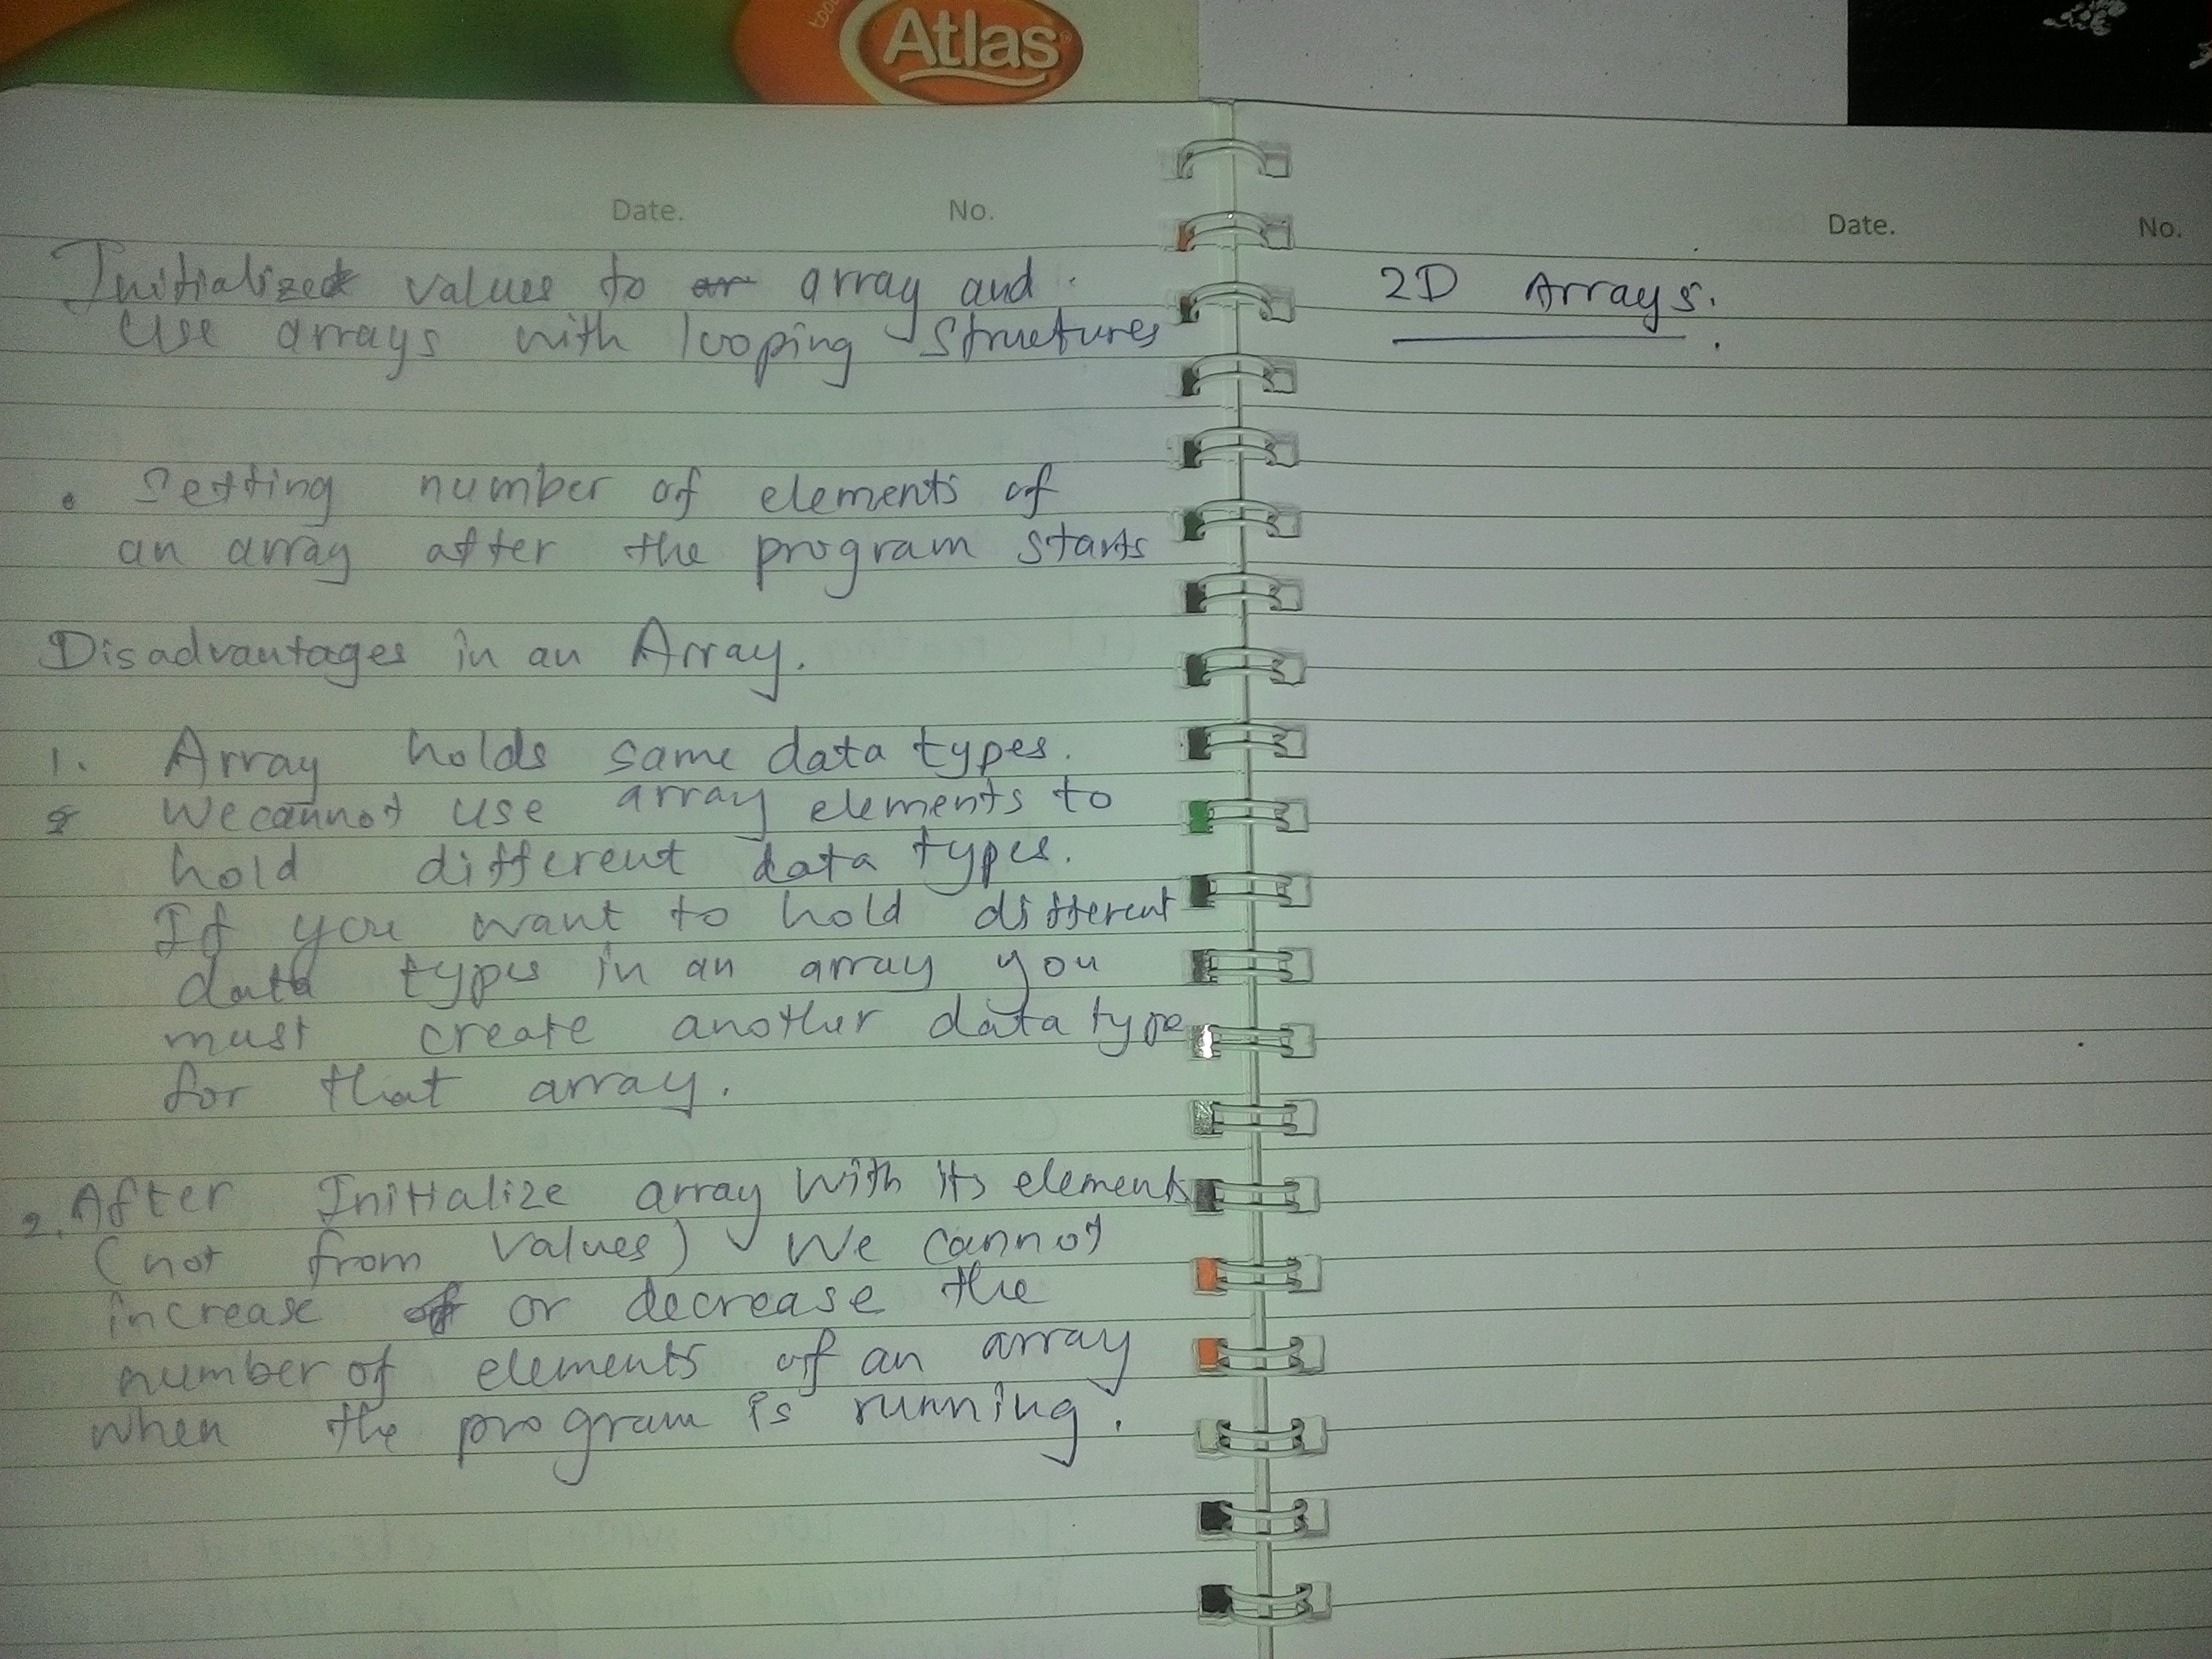 Atlas
Date. No.
Initialized values to array and
Use arrays with looping structures
• Setting number of elements of
an array after the program starts
Disadvantages in an Array.
1. Array holds same data types.
We cannot use array elements to
hold different data types.
If you want to hold different
data types in an array you
must create another data type
for that array.
2. After Initialize array with its elements
(not from values) We cannot
increase or decrease the
number of elements of an array
when the program is running.
Date. No.
2D Arrays.